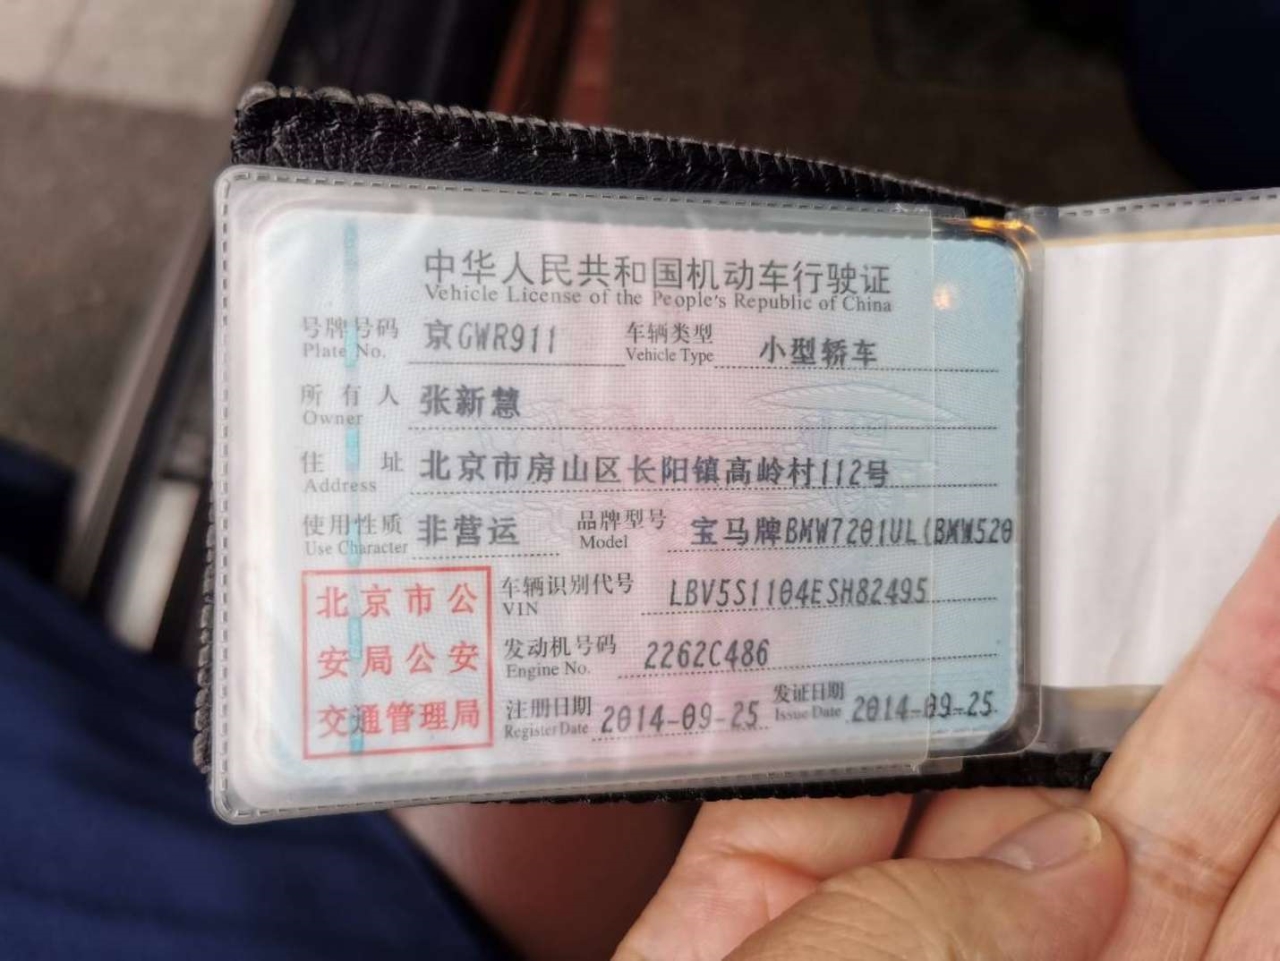 中华人民共和国机动车行驶证
Vehicle License of the People's Republic of China
号牌号码 京GWR911 车辆类型 小型轿车
Plate No. Vehicle Type
所有人 张新慧
Owner
住址 北京市房山区长阳镇高岭村112号
Address
使用性质 非营运 品牌型号 宝马牌BMW7201UL(BMW520
Use Character Model
车辆识别代号 LBV5S1104ESH82495
VIN
发动机号码 2262C486
Engine No.
注册日期 2014-09-25 发证日期 2014-09-25
Register Date Issue Date
北京市公
安局公安
交通管理局